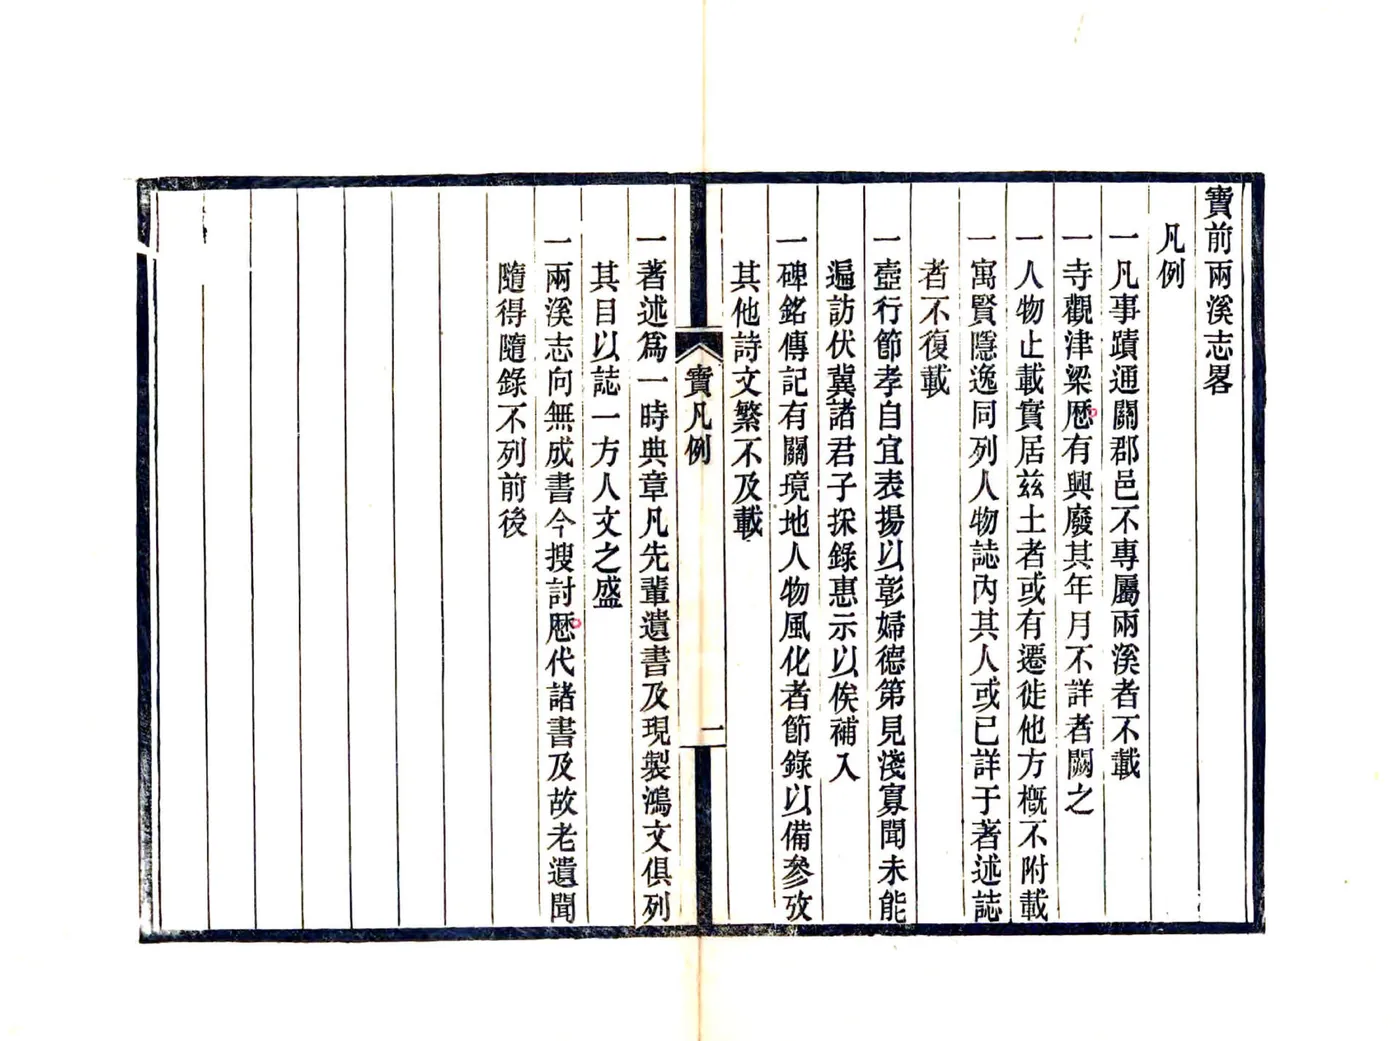 寶前兩溪志畧
凡例
一凡事蹟通關郡邑不專屬兩溪者不載
一寺觀津梁歷有興廢其年月不詳者闕之
一人物止載實居茲土者或有遷徙他方槪不附載
一寓賢隱逸同列人物誌內其人或已詳于著述誌
者不復載
一壼行節孝自宜表揚以彰婦德第見淺寡聞未能
遍訪伏冀諸君子採錄惠示以俟補入
一碑銘傳記有關境地人物風化者節錄以備參攷
其他詩文繁不及載
寶凡例
一
一著述爲一時典章凡先輩遺書及現製鴻文俱列
其目以誌一方人文之盛
一兩溪志向無成書今搜討歷代諸書及故老遺聞
隨得隨錄不列前後